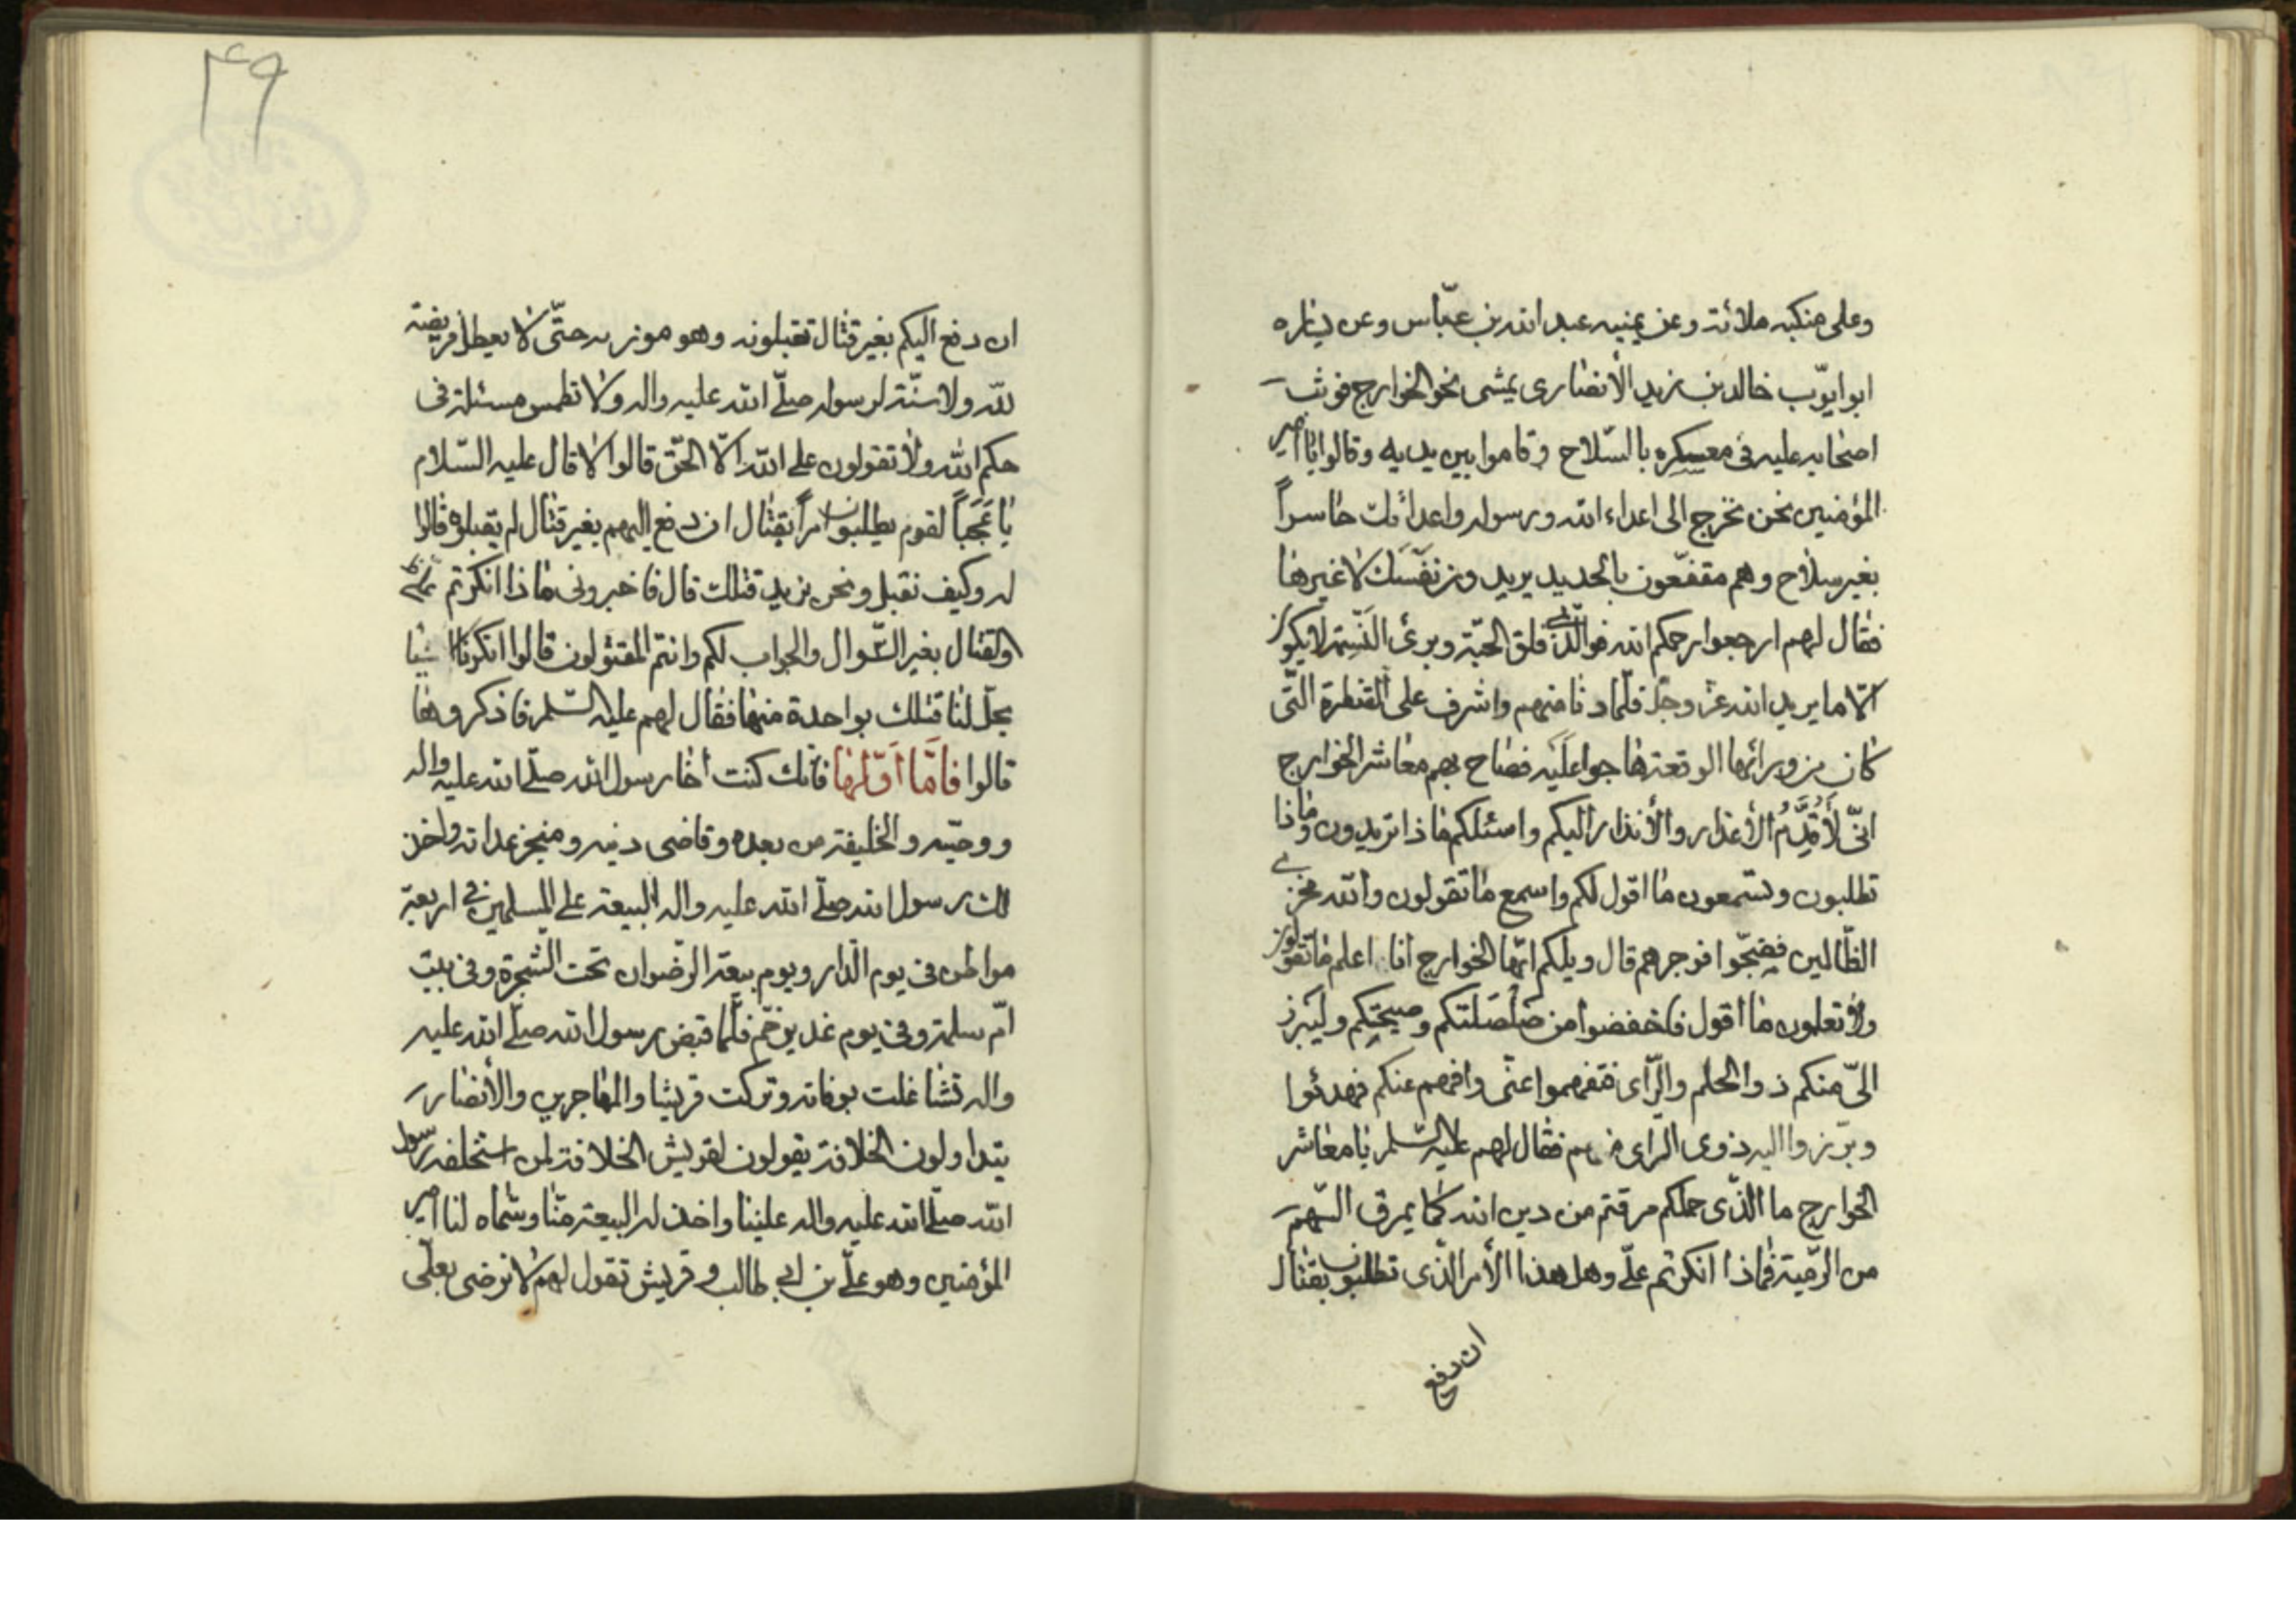 وعلى منكبه ملائة وعن يمينه عبد الله بن عبّاس وعن يساره
ابو ايوّب خالد بن زيد الأنصارى يمشى نحو الخوارج فوثب
اصحابه عليه فى معسكره بالسّلاح وقاموا بين يديه وقالوا يا امير
المؤمنين نحن نخرج الى اعداء الله ورسوله واعدائك حاسراً
بغير سلاح وهم مقنعّون بالحديد يريدون نفسك لا غيرها
فقال لهم ارجعوا رحمكم الله فوالّذى فلق الحبّة وبرئ النّسمة لا يكون
الّا ما يريد الله عزّ وجلّ فلمّا دنا منهم واشرف على القنطرة التّى
كان من ورائها الوقعة هاجوا عليه فصاح بهم معاشر الخوارج
انّى لأقدّم الأعذار والأنذار اليكم واسئلكم ماذا تريدون وماذا
تطلبون وتستمعون ما اقول لكم واسمع ما تقولون والله مخزى
الظّالمين فضجّوا فزجرهم قال ويلكم ايّها الخوارج انا اعلم ما تقولون
ولا تعلمون ما اقول فاخفضوا من صلصلتكم وصيحتكم وليبرز
الىّ منكم ذوالحلم والرّأى فتفهموا عنّى وافهم عنكم فهدئوا
وبرّزوا اليه ذوى الرّاى منهم فقال لهم عليه السّلم يا معاشر
الخوارج ما الذّى حملكم مرقتم من دين الله كما يمرق السّهم
من الرّمية فماذا انكرتم علىّ وهل هذا الأمر الذّى تطلبون بقتال
ان دفع
۴۹
ان دفع اليكم بغير قتال تقبلونه وهو موزر به حتّى لا يعطل فريضة
لله ولا سنّة لرسوله صلّى الله عليه واله ولا تطمس مسئلة فى
حكم الله ولا تقولون على الله الّا الحقّ قالوا لا قال عليه السّلام
يا عَجَباً لقوم يطلبون امراً بقتال ان دفع اليهم بغير قتال لم يقبلوه قالوا
له وكيف نقبل ونحن نريد قتلك قال فاخبرونى ماذا انكرتم علىّ
والقتال بغير السّوال والجواب لكم وانتم المقتولون قالوا انكرنا اشيا
يحلّ لنا قتلك بواحدة منها فقال لهم عليه السّلم فاذكروها
قالوا فامّا اوّلها فأنّك كنت أخا رسول الله صلّى الله عليه واله
ووصيّه والخليفة من بعده وقاضى دينه ومنجز عداته واخذ
لك رسول الله صلّى الله عليه واله البيعة على المسلمين فى اربعة
مواطن فى يوم الدّار ويوم بيعة الرّضوان تحت الشجرة وفى بيت
امّ سلمة وفى يوم غدير خمّ فلّما قبض رسول الله صلّى الله عليه
واله تشاغلت بوفاته وتركت قريشا والمهاجرين والأنصار
يتداولون الخلافة يقولون لقريش الخلافة لمن استخلفه رسول
الله صلّى الله عليه واله علينا واخذ له البيعة منّا وسمّاه لنا امير
المؤمنين وهو علىّ بن ابى طالب وقريش تقول لهم لا نرضى بعلّى